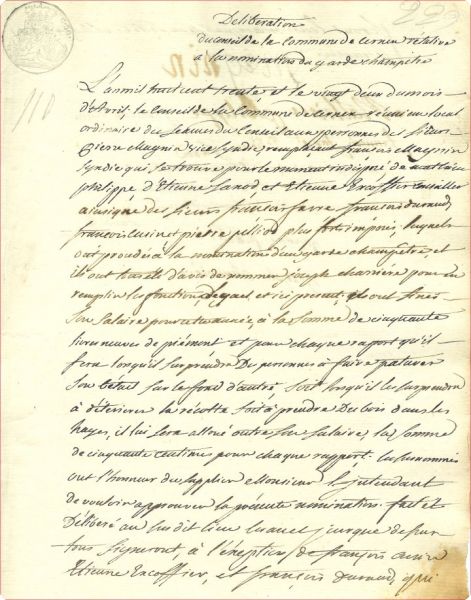 Déliberation
du conseil de la Commune de cernex rélative
à la nomination du garde champêtre
110
L'an mil huit cent trente et le vingt deux du mois
d'Avril, le Conseil de la Commune de Cernex réuni au local
ordinaire des séances du Conseil aux personnes des sieurs
pierre Magnin vice syndic remplaçant françois Magnin
syndic qui se trouve pour le moment indisposé
philippe d'Etienne et Etienne Encoffier conseiller
des sieurs françois favre françois durand
françois cusin et pierre pellied plus forts imposés, lesquels
ont procédés à la nomination d'un garde champêtre, et
ils ont tous été d'avis de nommer joseph charrière pour en
remplir les fonctions et ici présent ils ont fixés
son salaire pour cette année, à la somme de cinquante
livres neuves de piémont et pour chaque raport qu'il
fera lorsqu'il surprendra Des personnes à faire paturer
son bétail sur le fond d'autrui, soit lorsqu'il les surprendra
à détériorer la récolte soit à prendre Des bois dans les
hayes, il lui sera alloué outre son salaire la somme
de cinquante centimes pour chaque rapport. Les susnommés
ont l'honneur de supplier Monsieur L'Intendant
de vouloir approuver la présente nomination. fait et
Délibéré au sus dit lieu les an et jour que dessus
tous signeront, à l'éxception de françois cusin
Etienne Encoffier, et françois durand, qui